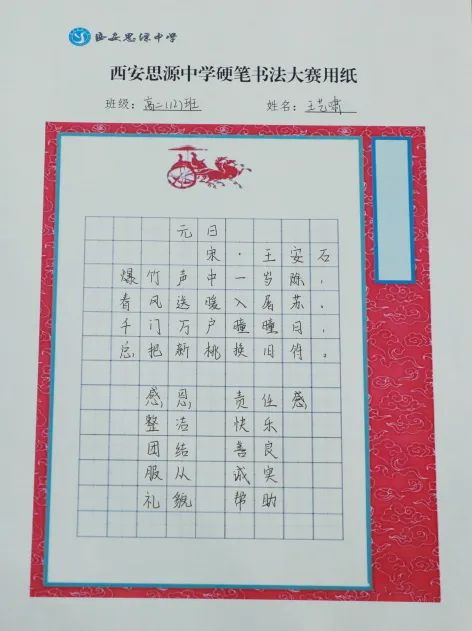 西安思源中学
西安思源中学硬笔书法大赛用纸
班级：高二(12)班 姓名：王艺啸
元日
宋·王安石
爆竹声中一岁除，
春风送暖入屠苏。
千门万户曈曈日，
总把新桃换旧符。
感恩 责任感
整洁 快乐
团结 善良
服从 诚实
礼貌 帮助